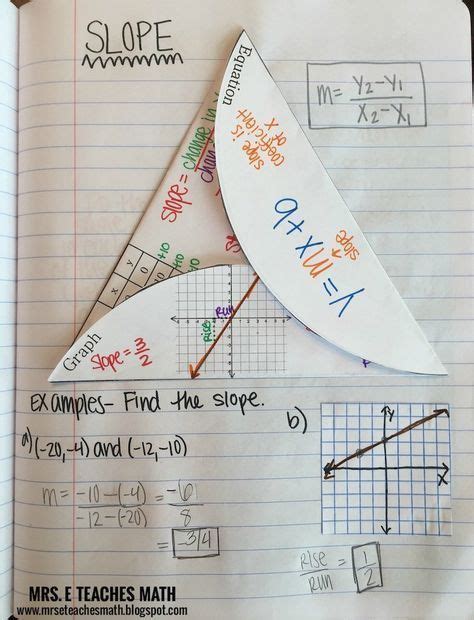 SLOPE
m = y₂ - y₁
x₂ - x₁
Equation
slope is
coefficient
of x
y = mx + b
slope
slope = change in
x
y
0
0
+10
+10
Graph
slope = 3/2
Rise
Run
Examples- Find the slope.
a) (-20,-4) and (-12,-10)
m = -10 - (-4) = -6
-12 - (-20) 8
= -3/4
b)
y
x
rise = 1
run 2
MRS. E TEACHES MATH
www.mrseteachesmath.blogspot.com